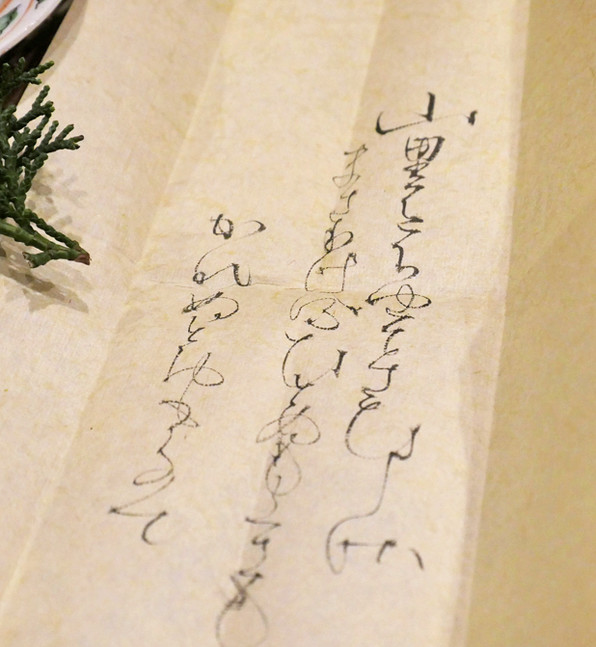 山里はふゆそさひしさ
まさりけるひとめもくさも
かれぬとおもへは